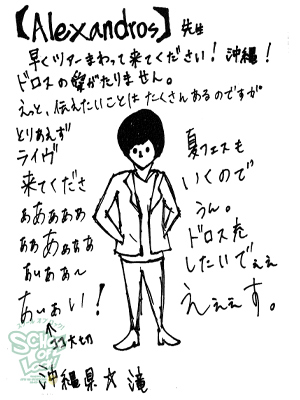 【[Alexandros]】先生
早くツアーまわって来てください！沖縄！
ドロスの がたりません。
えっと、伝えたいことはたくさんあるのですが
とりあえず
ライヴ
来てくださ
ぁあぁあああ
ぁぁあぁぁぁ
あぃぁぁ〜
あぃぉぃ！
↑ココ大切
夏フェスも
いくので
うん。
ドロスを
したいでぇぇ
えぇぇす。
SCHOOL OF LOCK!
沖縄県☆滝